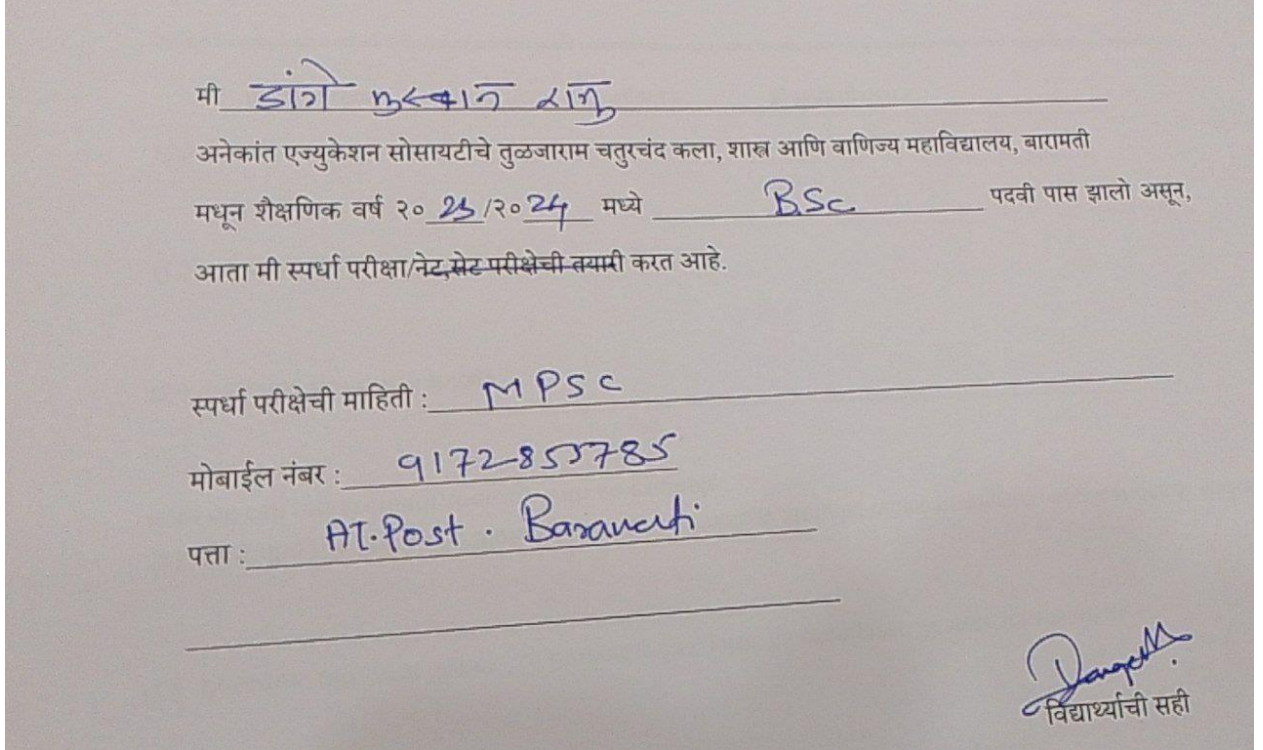 मी डांगे मुस्कान राजु
अनेकांत एज्युकेशन सोसायटीचे तुळजाराम चतुरचंद कला, शास्त्र आणि वाणिज्य महाविद्यालय, बारामती
मधून शैक्षणिक वर्ष २० 23 /२० 24 मध्ये B.Sc पदवी पास झालो असून,
आता मी स्पर्धा परीक्षा/नेट,सेट परीक्षेची तयारी करत आहे.
स्पर्धा परीक्षेची माहिती : MPSC
मोबाईल नंबर : 9172855785
पत्ता : AT. Post . Baramati
Dange M.
विद्यार्थ्याची सही